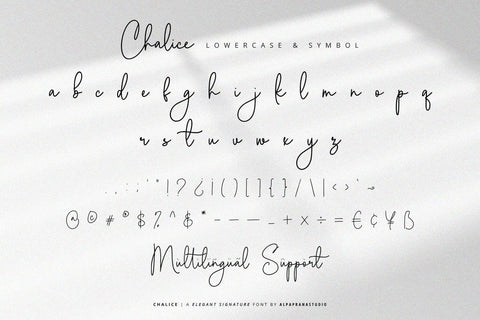 Chalice LOWERCASE & SYMBOL
a b c d e f g h i j k l m n o p q
r s t u v w x y z
. , : ; ' " * | ? ¿ ¡ ( ) [ ] { } / \ | < > `
@ © # ® $ % ^ $ * - – — _ + × ÷ = € ¢ ¥ ß
Multilingual Support
CHALICE | A ELEGANT SIGNATURE FONT BY ALPAPRANASTUDIO